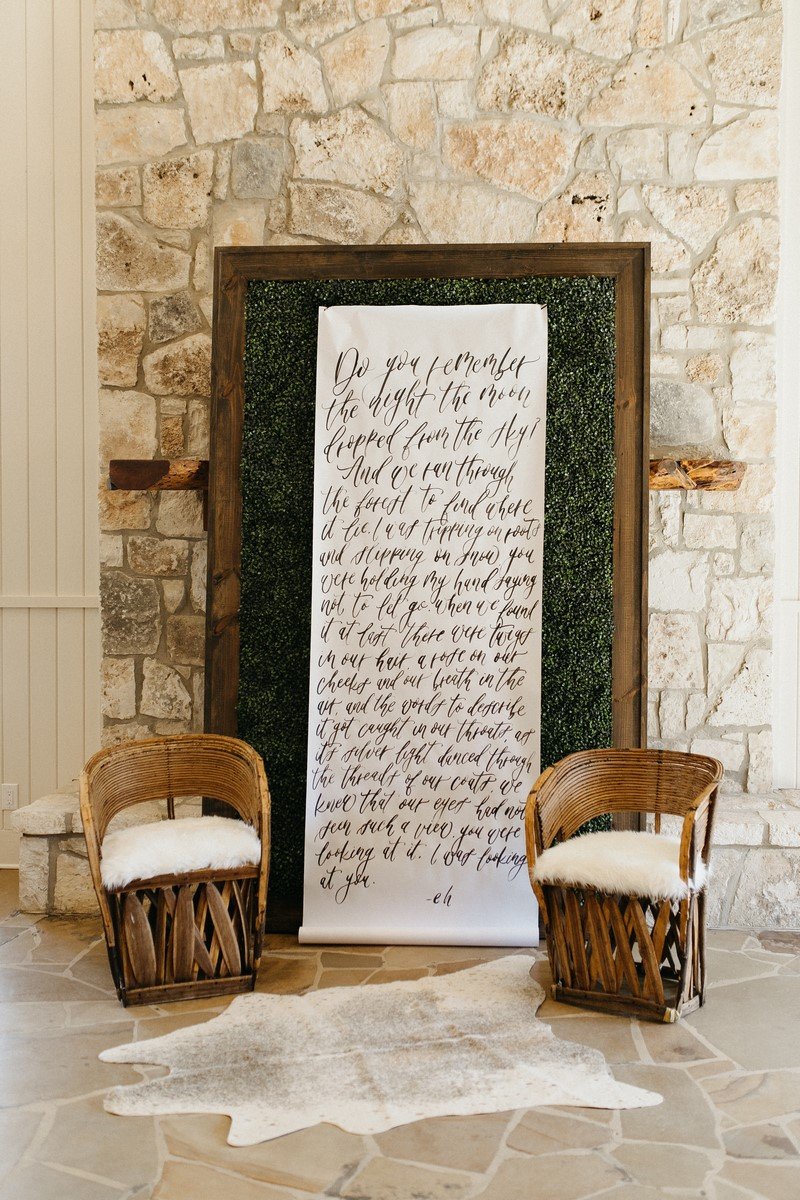 Do you remember
the night the moon
dropped from the sky?
And we ran through
the forest to find where
it lie. I was tripping on roots
and slipping on snow, you
were holding my hand saying
not to let go. when we found
it at last there were twigs
in our hair a rose on our
cheeks and our breath in the
air, and the words to describe
it got caught in our throats as
it's silver light danced through
the threads of our coats. we
knew that our eyes had not
seen such a view. you were
looking at it. I was looking
at you.
-eh